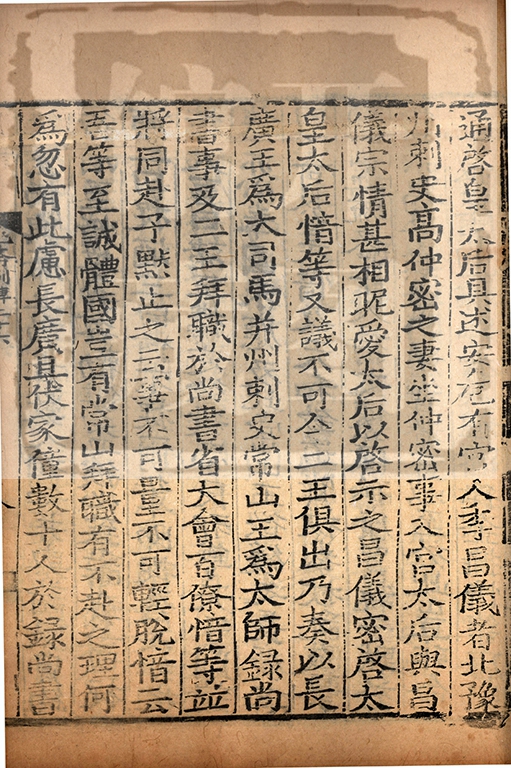 通啓皇太后具述安危有宮人李昌儀者北豫
州刺史高仲密之妻坐仲密事入宮太后與昌
儀宗情甚相昵愛太后以啓示之昌儀密啓太
皇太后愔等又議不可令二王俱出乃奏以長
廣王爲大司馬并州刺史常山王爲太師録尚
書事及二王拜職於尚書省大會百僚愔等並
將同赴子黙止之云事不可量不可輕脫愔云
吾等至誠體國豈有常山拜職有不赴之理何
爲忽有此慮長廣旦伏家僮數十人於録尚書